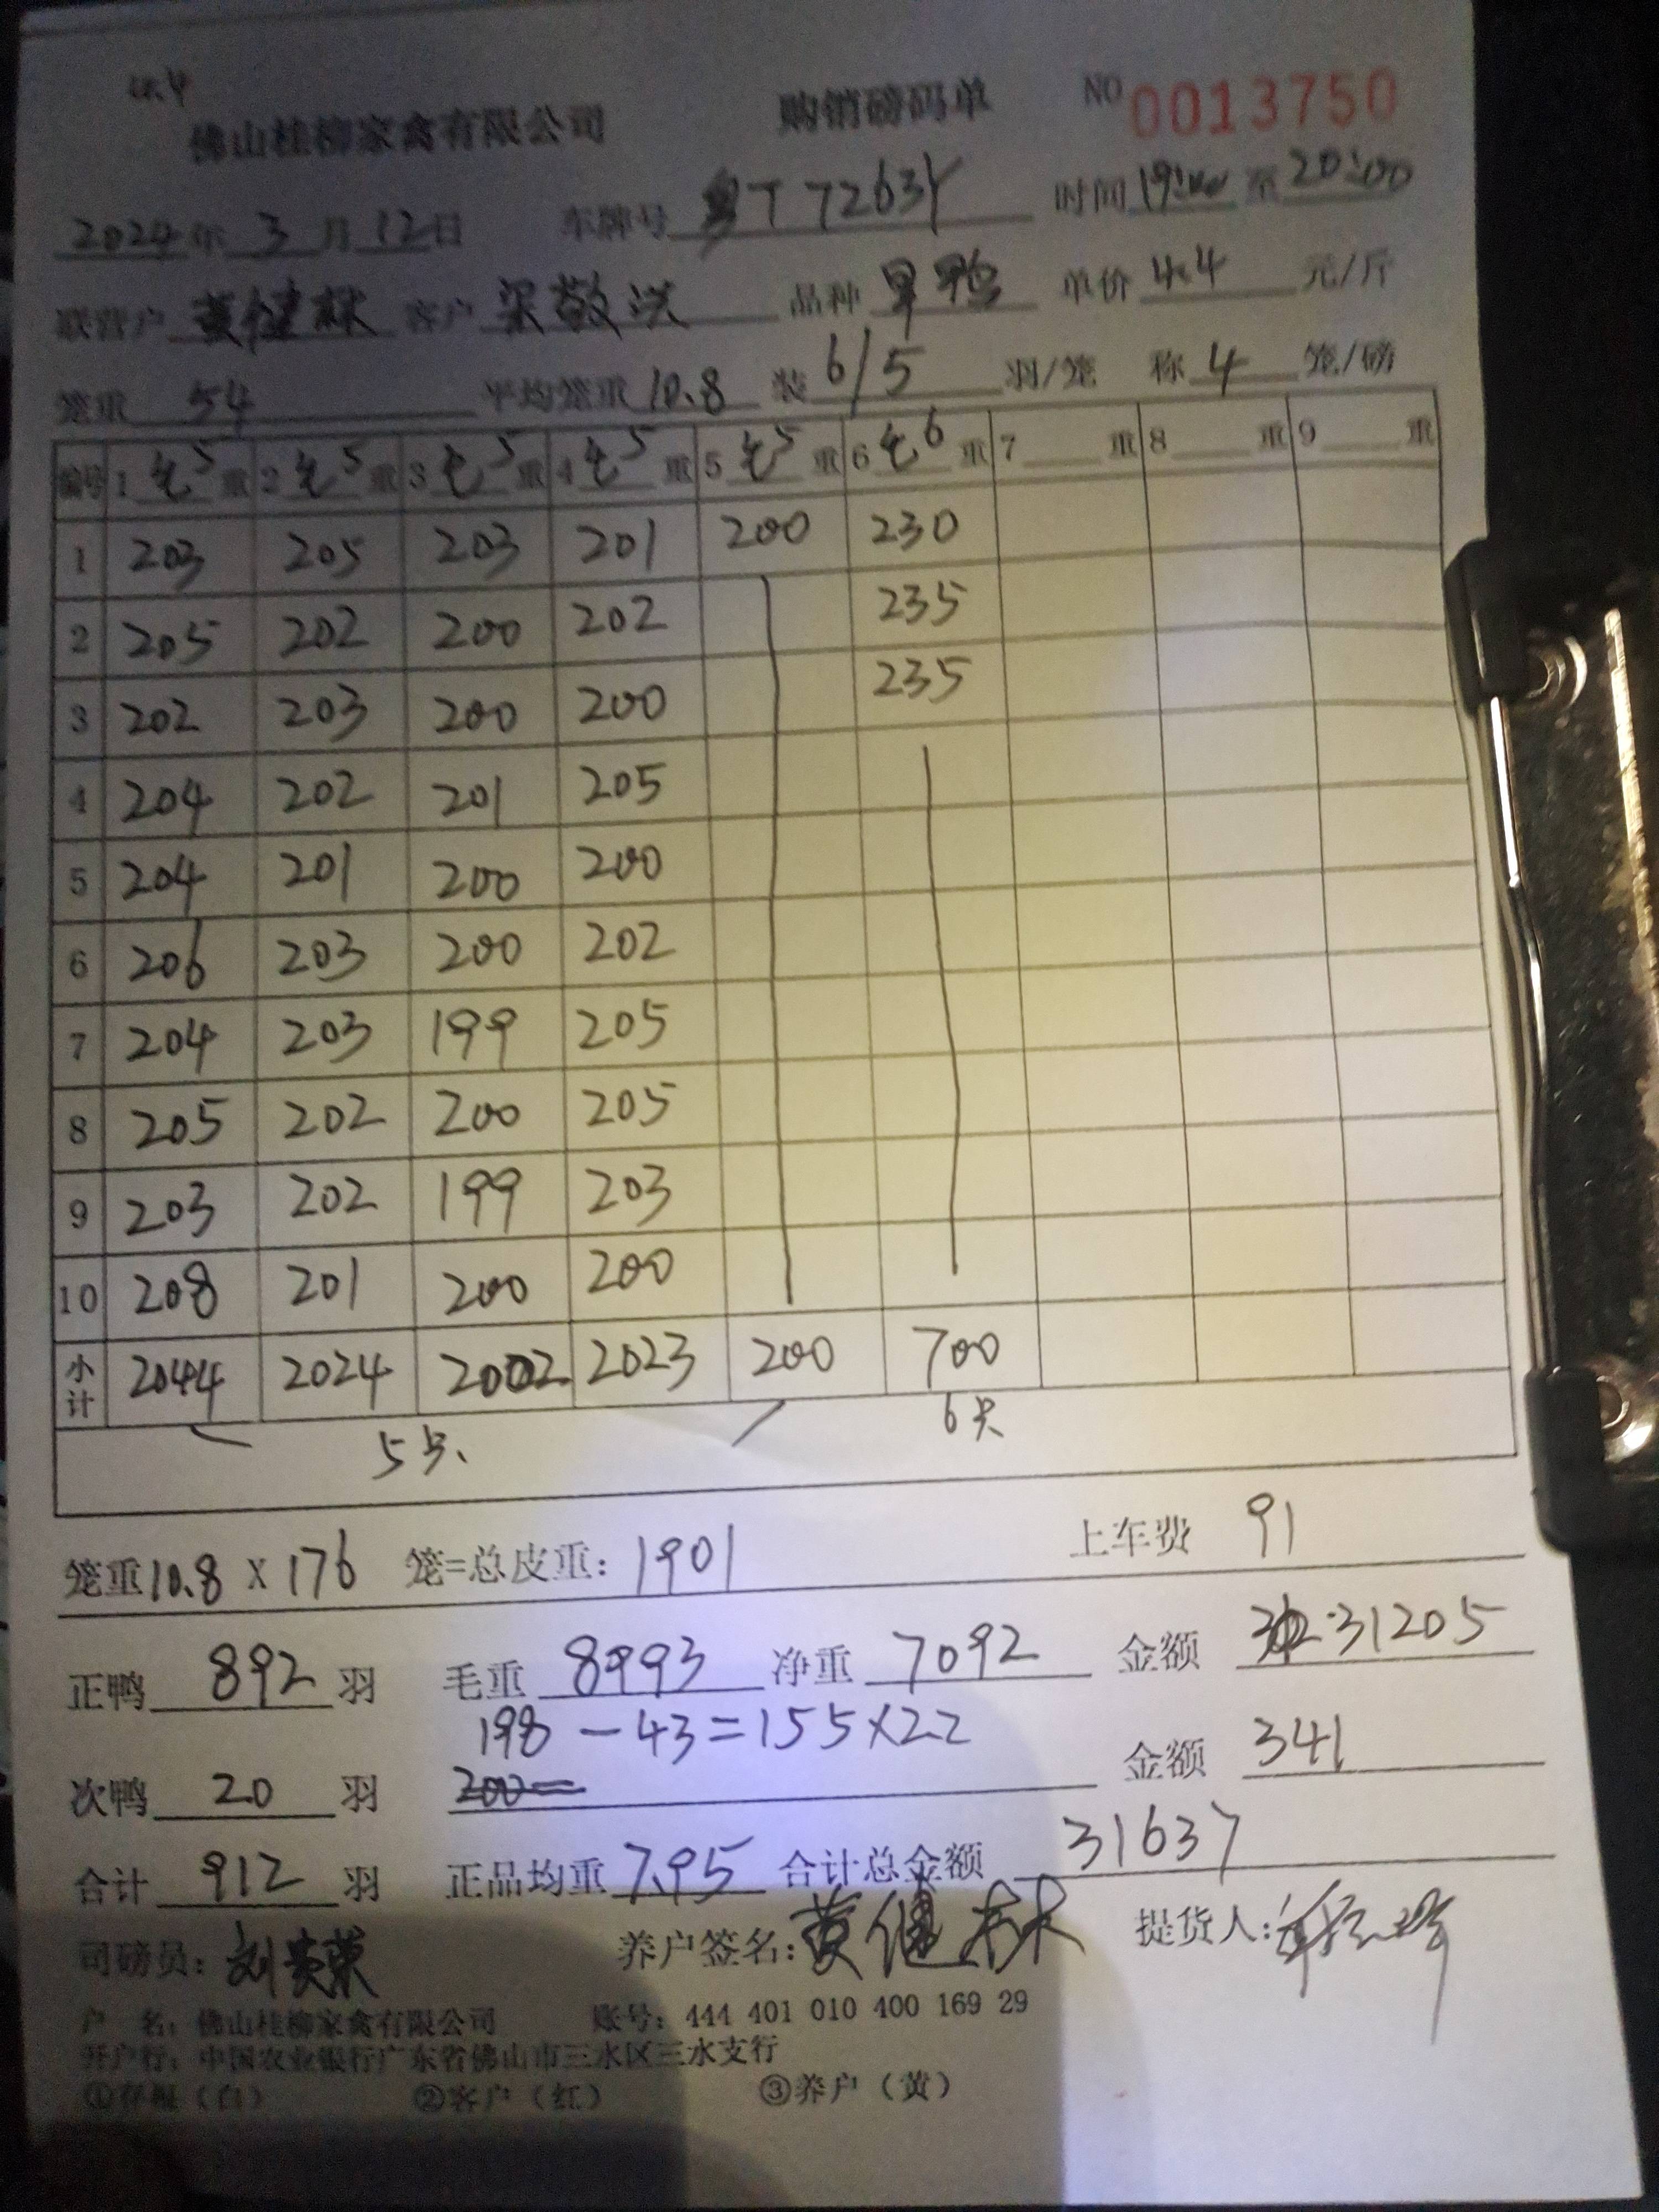 佛山桂柳家禽有限公司 购销磅码单 NO 0013750
2024年 3月 12日 车牌号 粤T 7263Y 时间 19:00 至 20:00
联营户 黄健林 客户 梁敬洪 品种 单价 4.4 元/斤
笼重 54 平均笼重 10.8 装 6/5 羽/笼 称 4 笼/磅
编号 1 毛5 重 2 毛5 重 3 毛5 重 4 毛5 重 5 毛5 重 6 毛6 重 7 重 8 重 9 重
1 203 205 203 201 200 230
2 205 202 200 202 235
3 202 203 200 200 235
4 204 202 201 205
5 204 201 200 200
6 206 203 200 202
7 204 203 199 205
8 205 202 200 205
9 203 202 199 203
10 208 201 200 200
小计 2044 2024 2002 2023 200 700
5只 6只
笼重 10.8 X 176 笼=总皮重: 1901 上车费 91
正鸭 892 羽 毛重 8993 净重 7092 金额 31205
198 - 43 = 155 X 2.2
次鸭 20 羽 金额 341
合计 912 羽 正品均重 7.95 合计总金额 31637
司磅员: 养户签名: 黄健林 提货人:
户 名: 佛山桂柳家禽有限公司 账号: 444 401 010 400 169 29
开户行: 中国农业银行广东省佛山市三水区三水支行
①存根(白) ②客户(红) ③养户(黄)